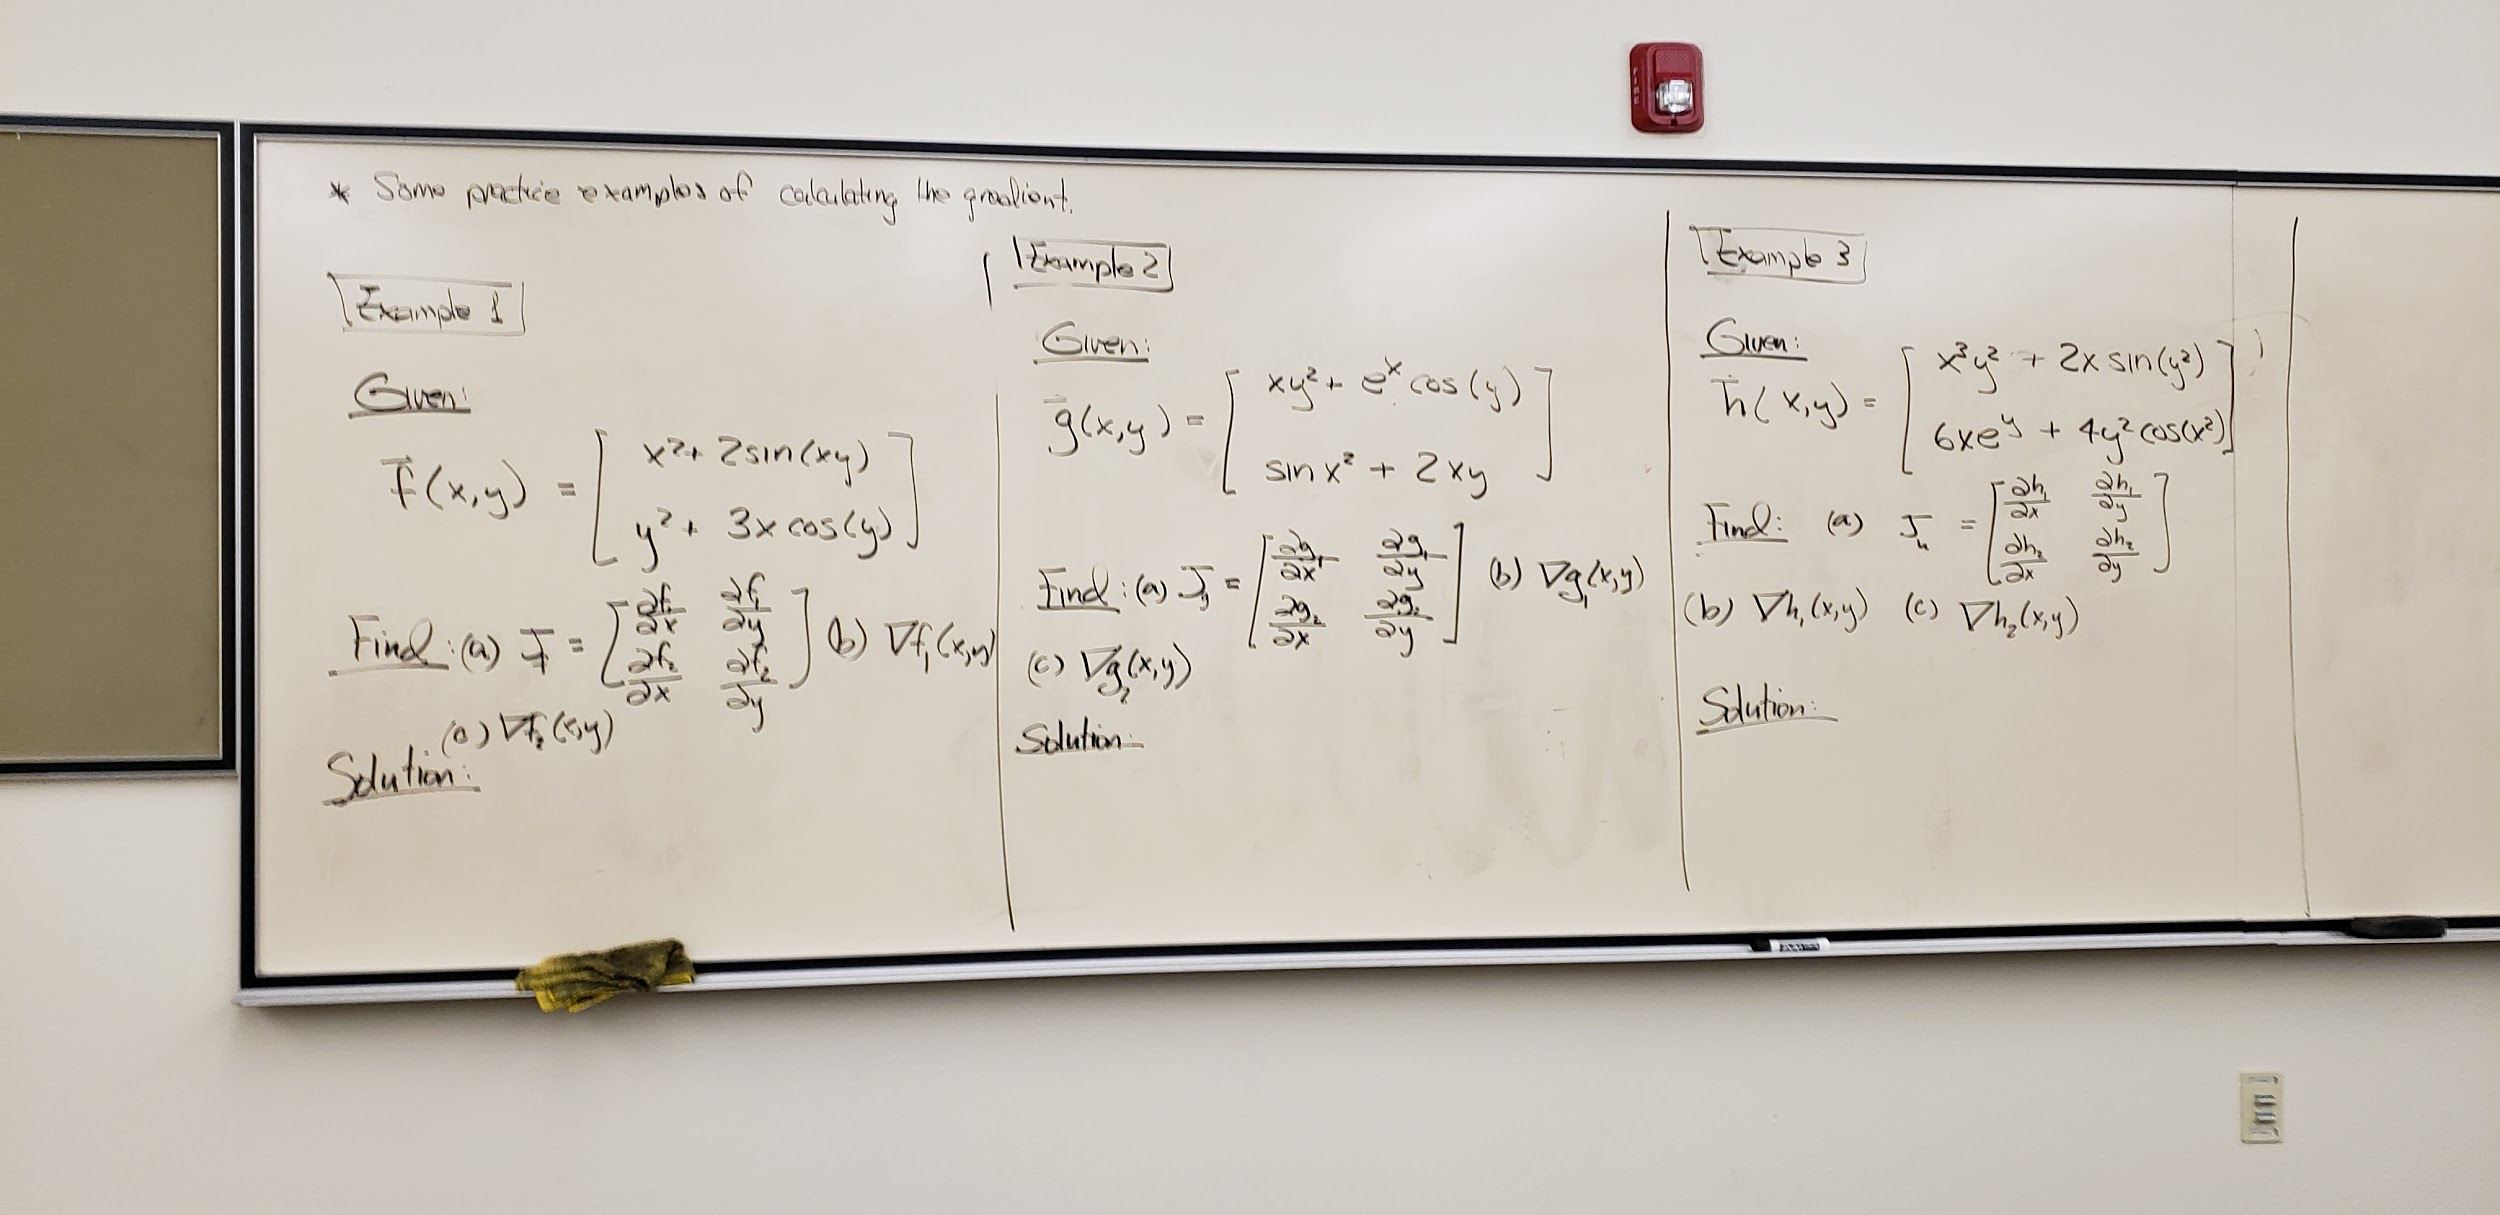 * Some practice examples of calculating the gradient.
Example 1
Given:
f(x,y) = [ x²+ 2sin(xy)
y²+ 3x cos(y) ]
Find: (a) J_f = [ ∂f₁/∂x ∂f₁/∂y
∂f₂/∂x ∂f₂/∂y ] (b) ∇f₁(x,y)
(c) ∇f₂(x,y)
Solution:
Example 2
Given:
g(x,y) = [ xy²+ eˣ cos(y)
sin x² + 2xy ]
Find: (a) J_g = [ ∂g₁/∂x ∂g₁/∂y
∂g₂/∂x ∂g₂/∂y ] (b) ∇g₁(x,y)
(c) ∇g₂(x,y)
Solution:
Example 3
Given:
h(x,y) = [ x³y² + 2x sin(y²)
6xeʸ + 4y² cos(x²) ]
Find: (a) J_h = [ ∂h₁/∂x ∂h₁/∂y
∂h₂/∂x ∂h₂/∂y ]
(b) ∇h₁(x,y) (c) ∇h₂(x,y)
Solution:
FIRE